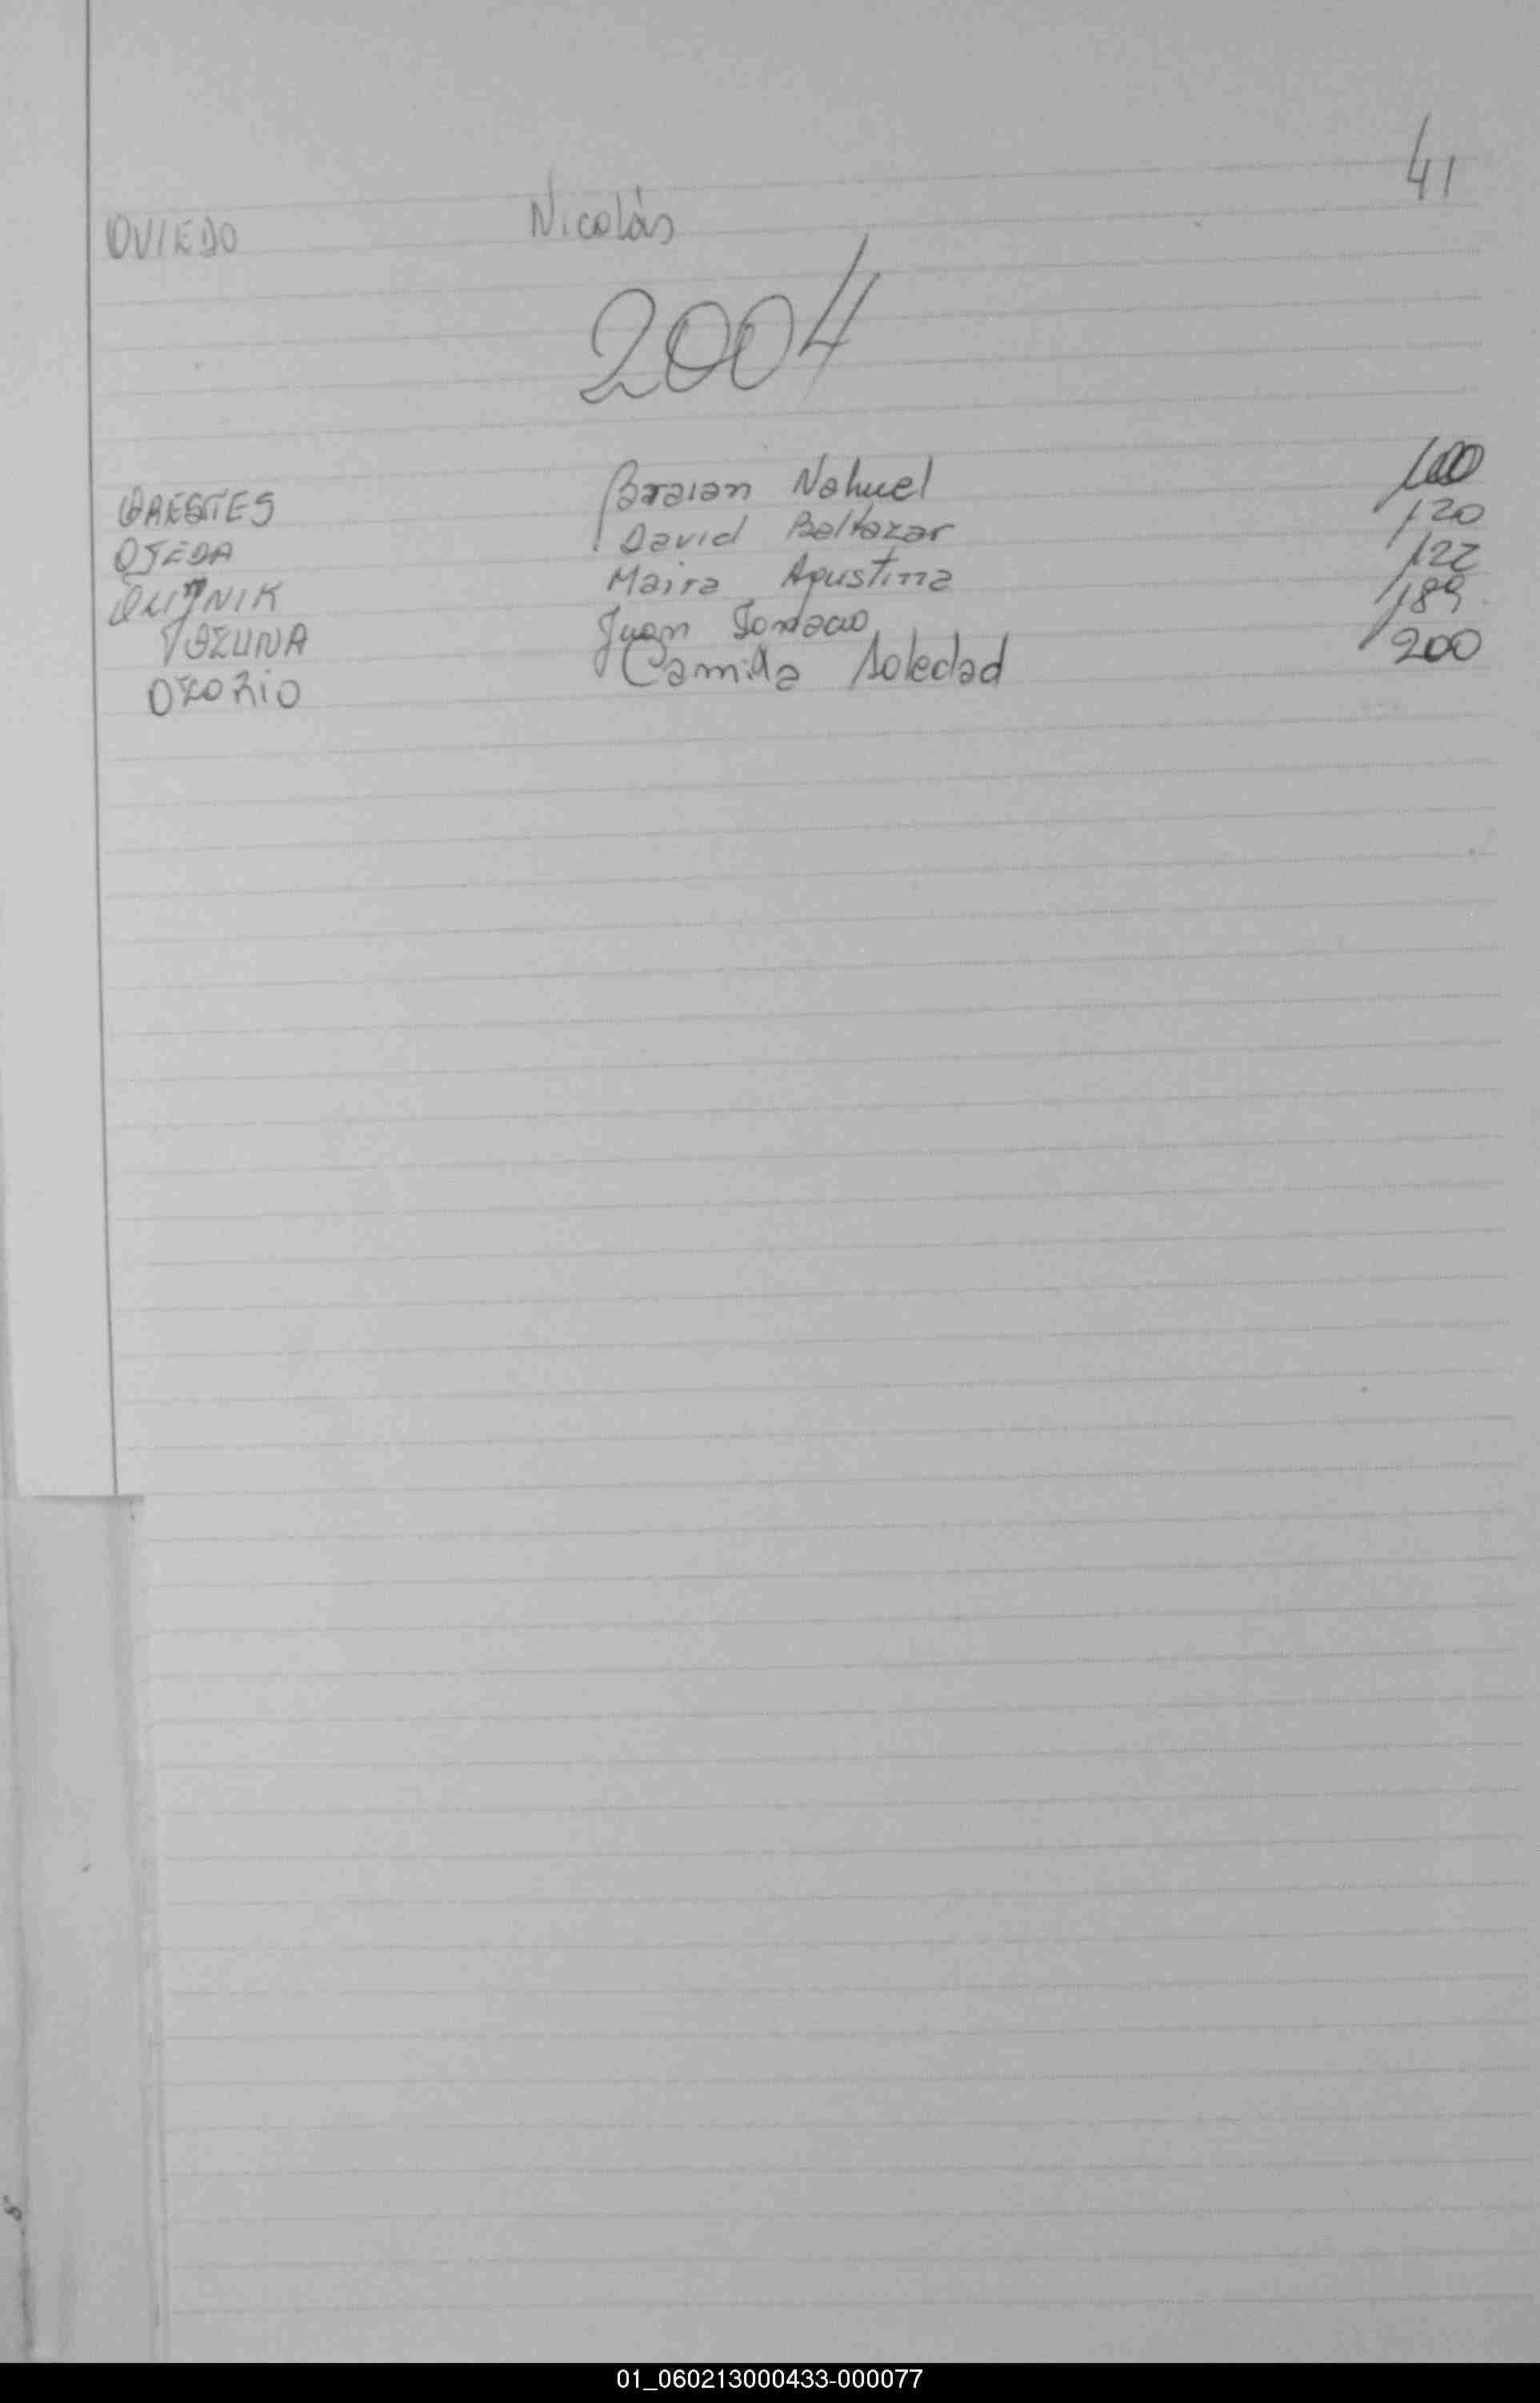 OVIEDO Nicolás 41
2004
ORESTES Braian Nahuel 100
OJEDA David Baltazar 120
Maira Agustina 122
OZUNA Juan 189
OZORIO Camila Soledad 200
01_060213000433-000077